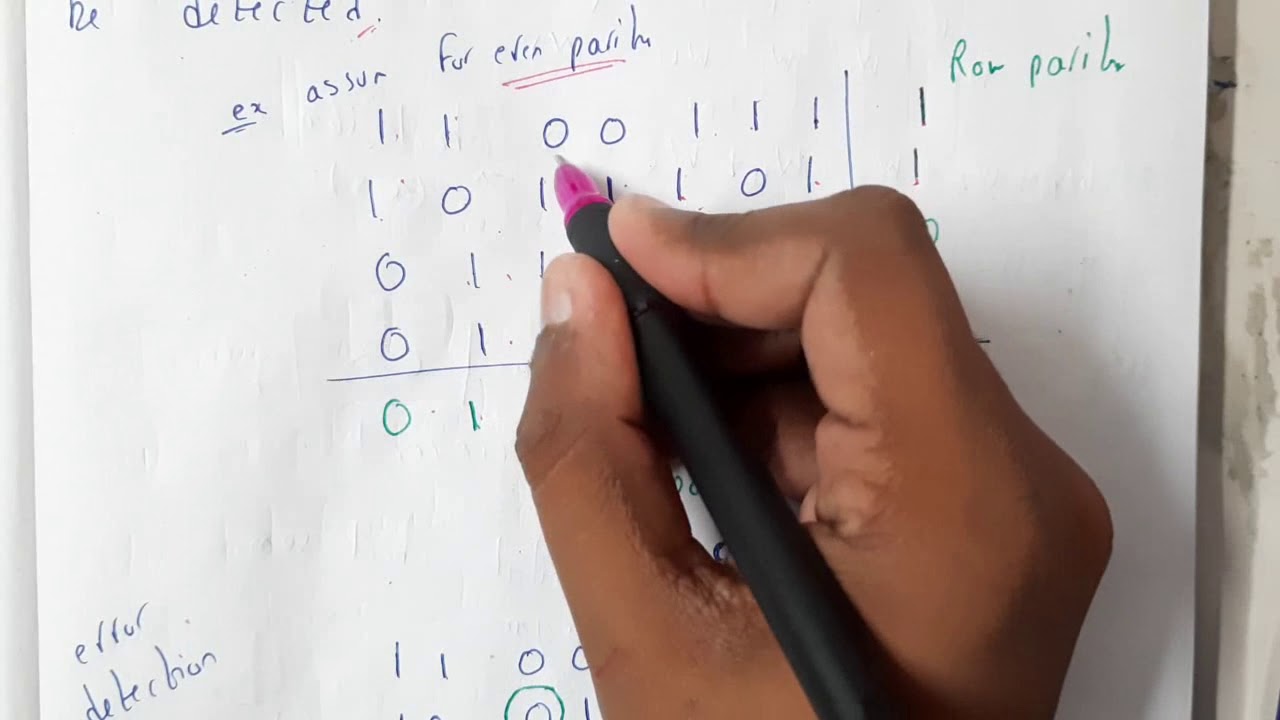 be detected.
ex assum For even parity
Row parity
1 1 0 0 1 1 1 | 1
1 0 1 1 1 0 1 | 1
0 1 1 0
0 1
0 1
error
detection
1 1 0 0
1 0 0 1